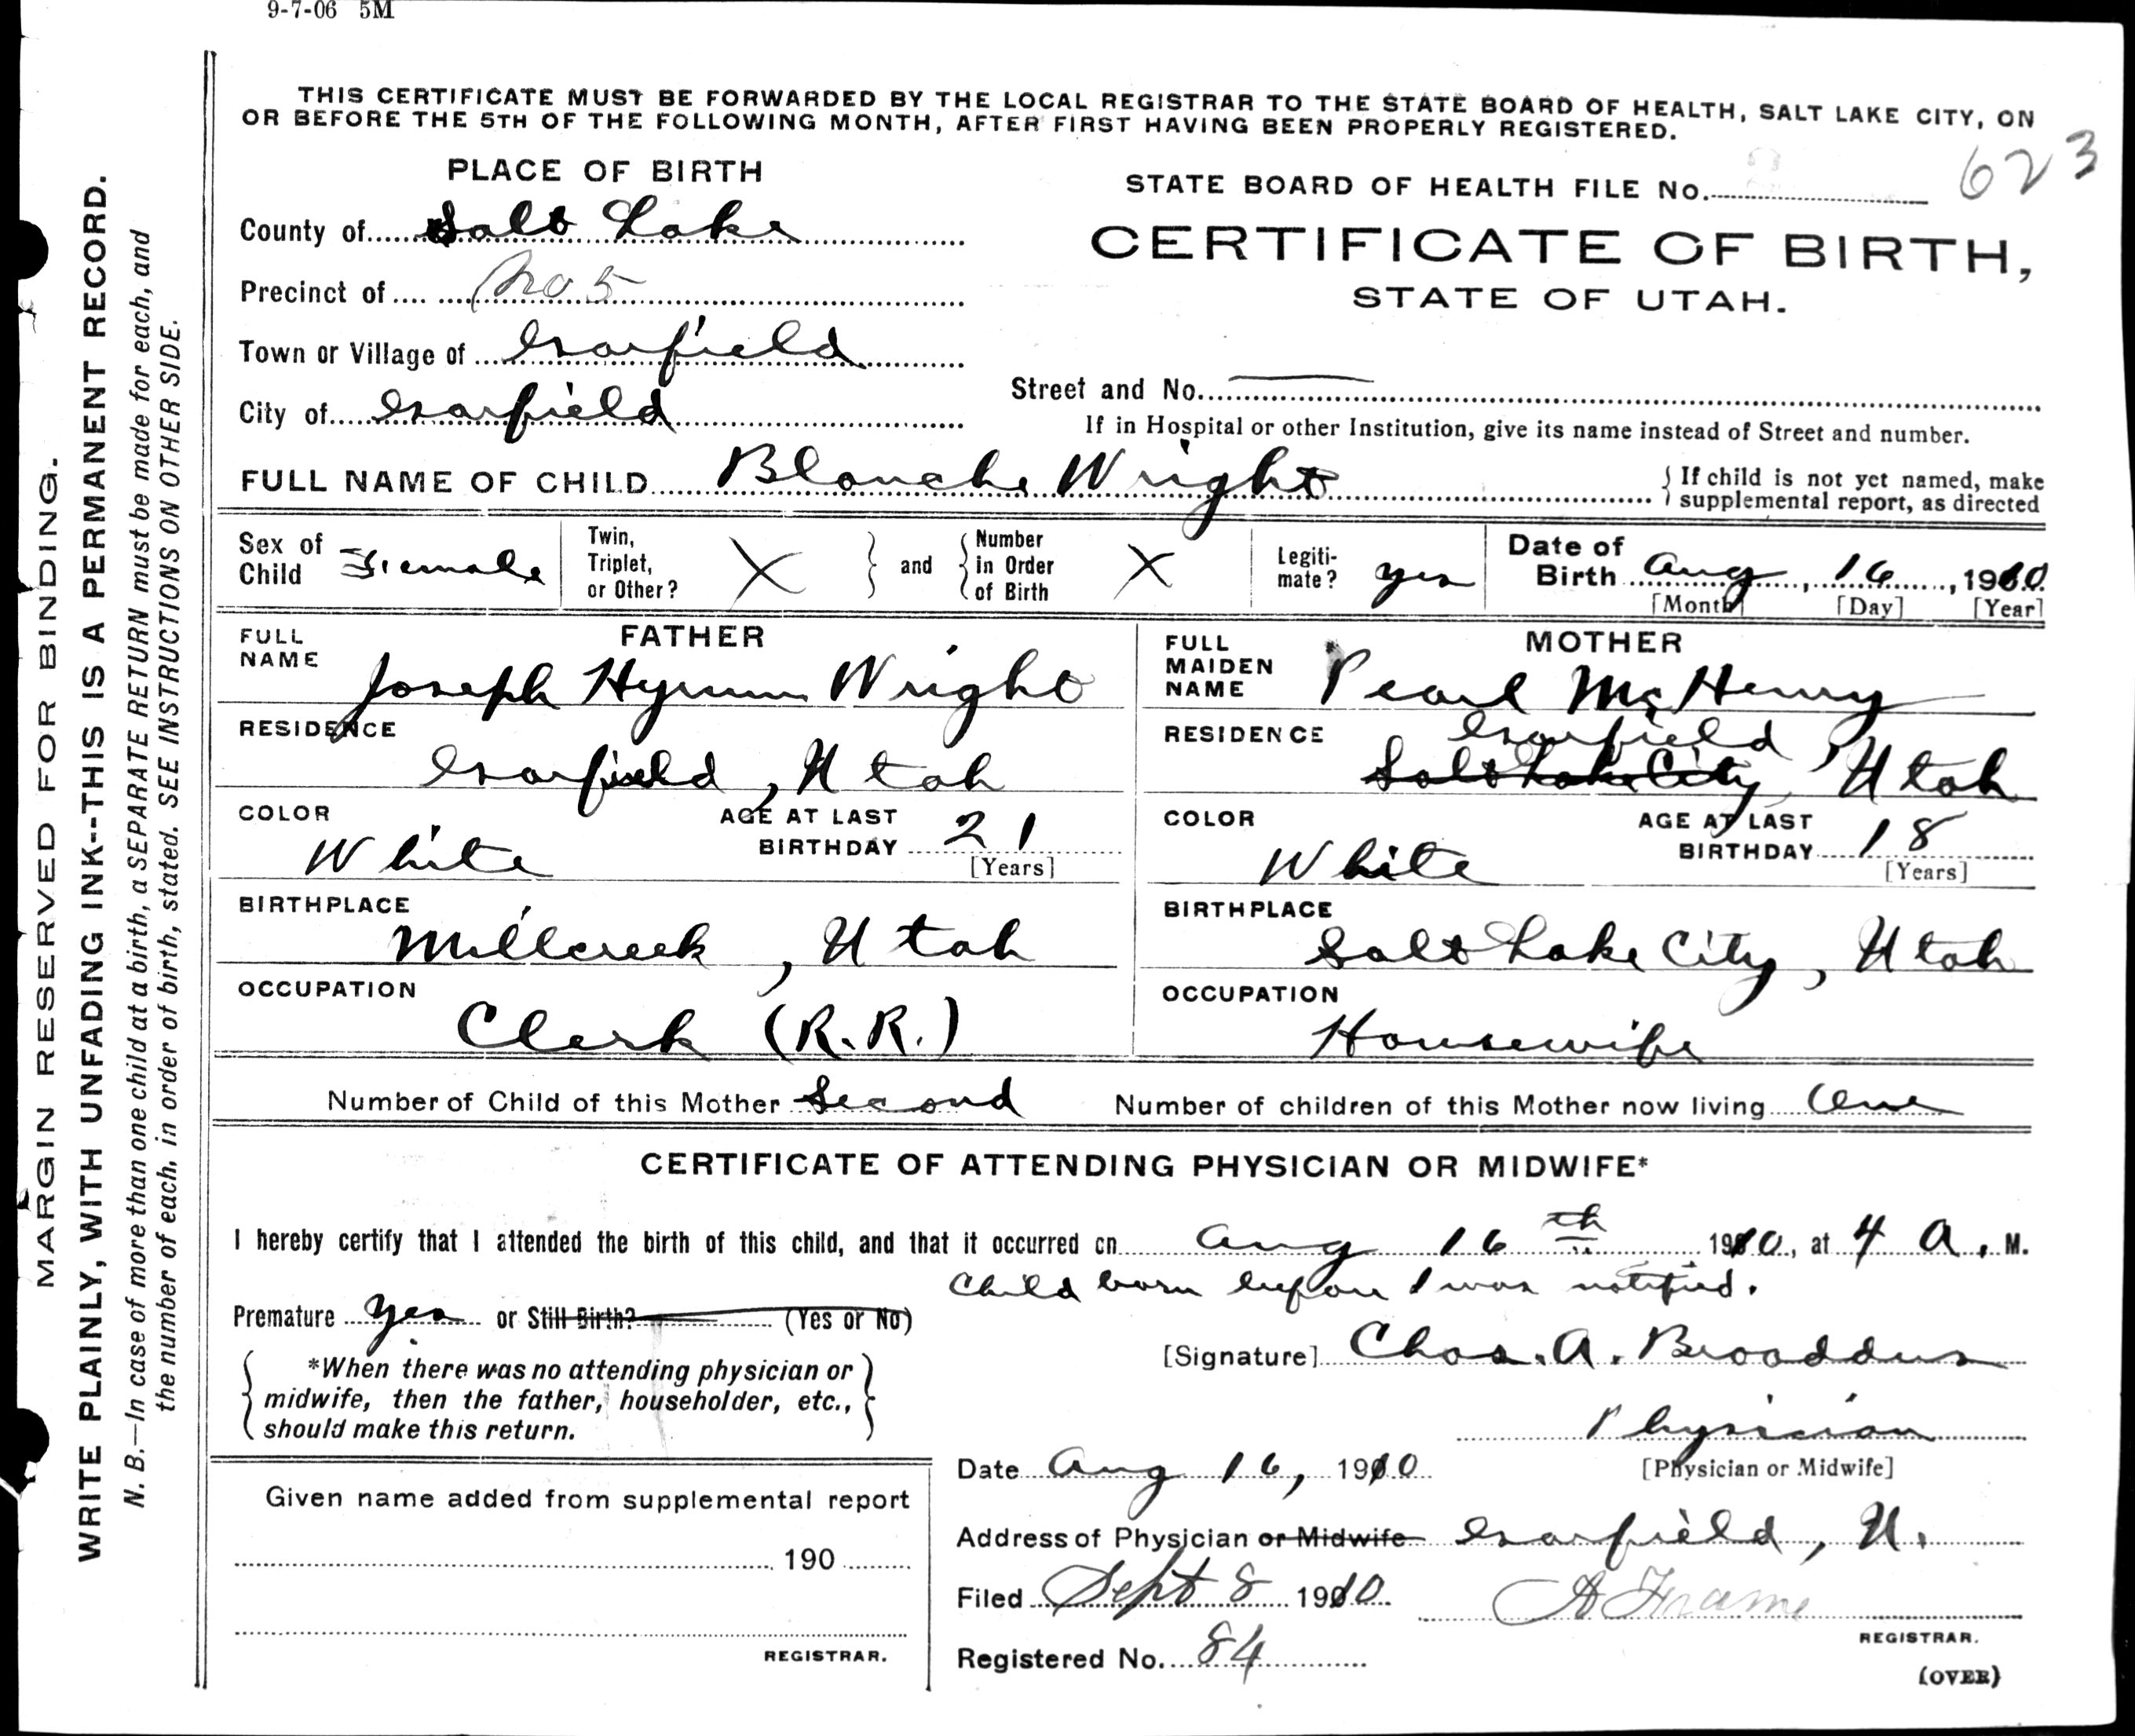 9-7-06 5M
THIS CERTIFICATE MUST BE FORWARDED BY THE LOCAL REGISTRAR TO THE STATE BOARD OF HEALTH, SALT LAKE CITY, ON
OR BEFORE THE 5TH OF THE FOLLOWING MONTH, AFTER FIRST HAVING BEEN PROPERLY REGISTERED.
MARGIN RESERVED FOR BINDING.
WRITE PLAINLY, WITH UNFADING INK--THIS IS A PERMANENT RECORD.
N. B.—In case of more than one child at a birth, a SEPARATE RETURN must be made for each, and
the number of each, in order of birth, stated. SEE INSTRUCTIONS ON OTHER SIDE.
PLACE OF BIRTH
County of Salt Lake
Precinct of No 5
Town or Village of Garfield
City of Garfield
STATE BOARD OF HEALTH FILE No. 623
CERTIFICATE OF BIRTH,
STATE OF UTAH.
Street and No. —
If in Hospital or other Institution, give its name instead of Street and number.
FULL NAME OF CHILD Blanche Wright
{ If child is not yet named, make
supplemental report, as directed
Sex of Child Female
Twin, Triplet, or Other? X } and { Number in Order of Birth X
Legiti-mate? yes
Date of Birth Aug, 16, 1910
[Month] [Day] [Year]
FATHER
FULL NAME Joseph Hyrum Wright
RESIDENCE
Garfield, Utah
COLOR White
AGE AT LAST BIRTHDAY 21
[Years]
BIRTHPLACE
Millcreek, Utah
OCCUPATION
Clerk (R.R.)
MOTHER
FULL MAIDEN NAME Pearl McHenry
RESIDENCE Garfield
Salt Lake City, Utah
COLOR White
AGE AT LAST BIRTHDAY 18
[Years]
BIRTHPLACE
Salt Lake City, Utah
OCCUPATION
Housewife
Number of Child of this Mother Second Number of children of this Mother now living One
CERTIFICATE OF ATTENDING PHYSICIAN OR MIDWIFE*
I hereby certify that I attended the birth of this child, and that it occurred on Aug 16th 1910, at 4 A. M.
Child born before I was notified.
Premature yes or Still Birth? (Yes or No)
{ *When there was no attending physician or
midwife, then the father, householder, etc.,
should make this return. }
[Signature] Chas. A. Broaddus
Physician
[Physician or Midwife]
Date Aug 16, 1910
Address of Physician or Midwife Garfield, U.
Filed Sept 8 1910 A Frame
REGISTRAR.
Registered No. 84
(OVER)
Given name added from supplemental report
190
REGISTRAR.